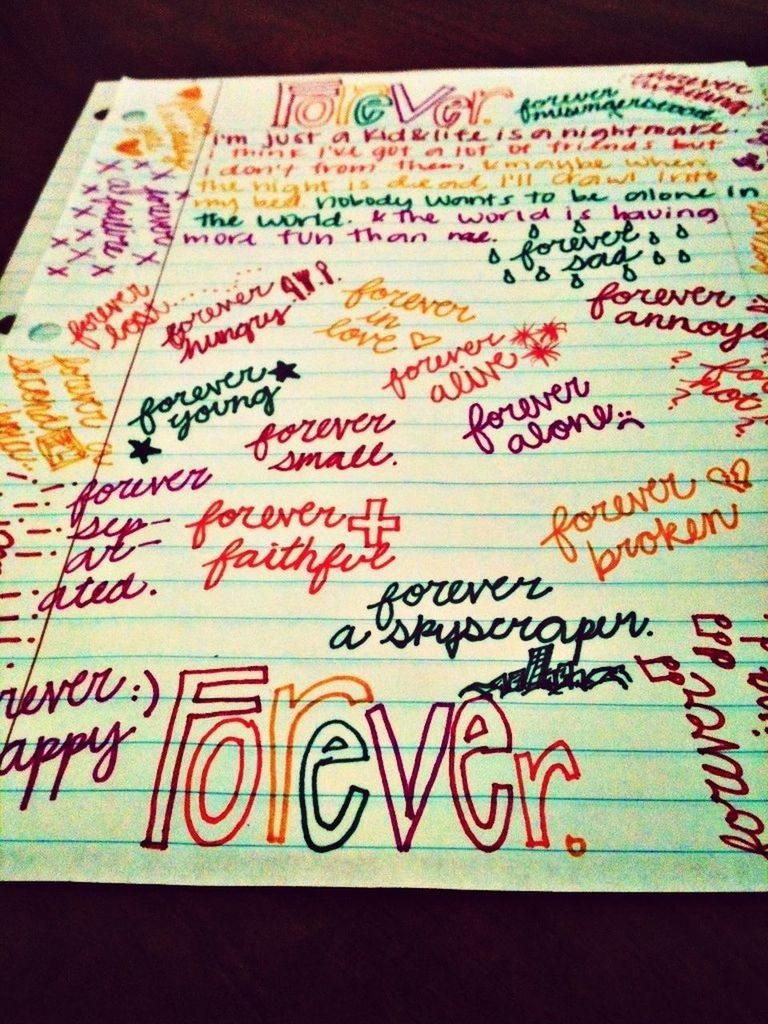 Forever.
forever
misunderstood.
i'm just a kid & life is a nightmare.
i think i've got a lot of friends but
i don't from them, & maybe when
the night is dead, i'll crawl into
my bed. nobody wants to be alone in
the world. & the world is having
more fun than me.
forever
a failure
x x x x x
x x x x
forever
sad
forever
lost...........
forever
hungry!!!.
forever
in
love
forever
annoye
forever
alive
forever
young
forever
alone :(
forever
small.
forever
second
forever
sep-
ar-
ated.
forever
faithful
forever
broken
forever
a skyscraper.
rever :)
appy
forever
Forever.